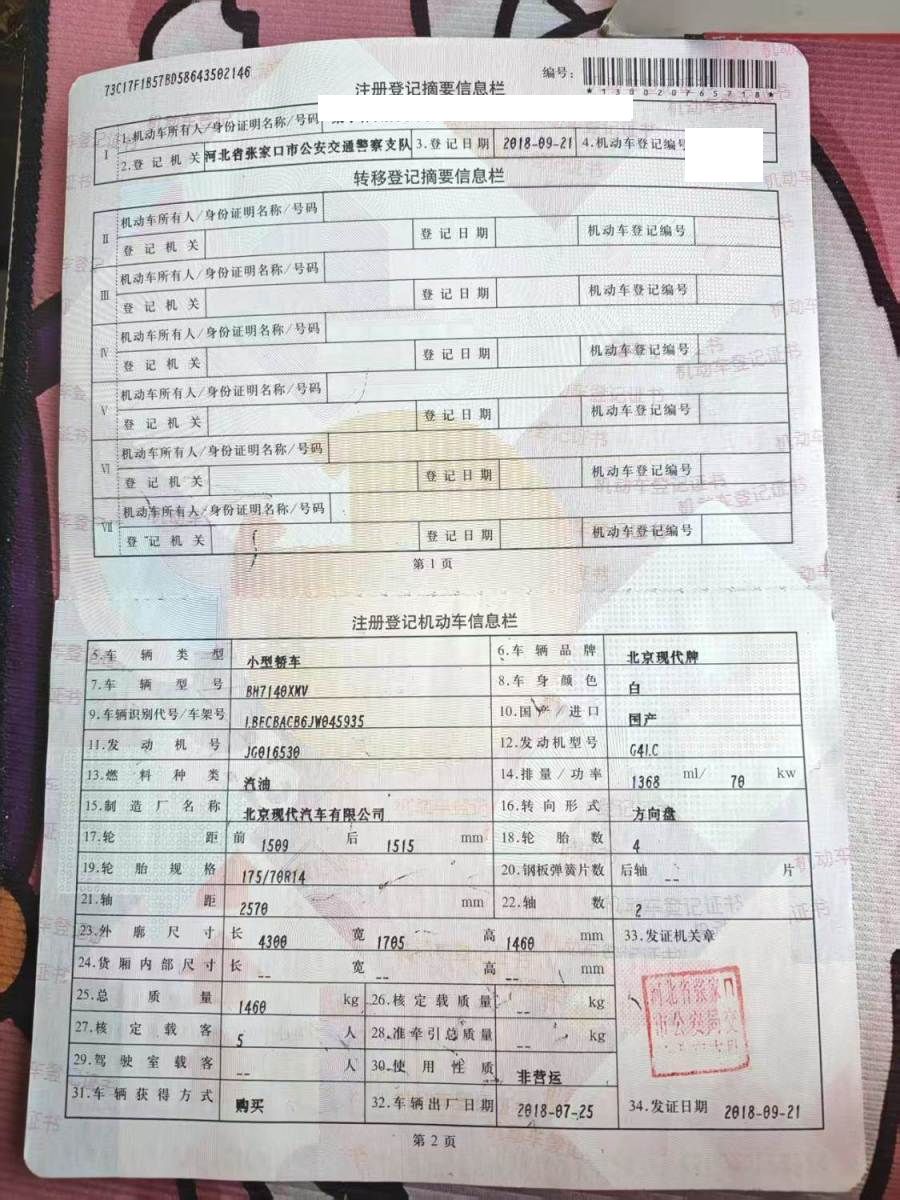 73C17F1B57BD58643502146
编号:
*130020765218*
注册登记摘要信息栏
I 1.机动车所有人/身份证明名称/号码
2.登记机关 河北省张家口市公安交通警察支队 3.登记日期 2018-09-21 4.机动车登记编号
转移登记摘要信息栏
II 机动车所有人/身份证明名称/号码
登记机关 登记日期 机动车登记编号
III 机动车所有人/身份证明名称/号码
登记机关 登记日期 机动车登记编号
IV 机动车所有人/身份证明名称/号码
登记机关 登记日期 机动车登记编号
V 机动车所有人/身份证明名称/号码
登记机关 登记日期 机动车登记编号
VI 机动车所有人/身份证明名称/号码
登记机关 登记日期 机动车登记编号
VII 机动车所有人/身份证明名称/号码
登记机关 登记日期 机动车登记编号
第1页
注册登记机动车信息栏
5.车辆类型 小型轿车 6.车辆品牌 北京现代牌
7.车辆型号 BH7140XMV 8.车身颜色 白
9.车辆识别代号/车架号 LBECBACB6JW045935 10.国产/进口 国产
11.发动机号 JG016530 12.发动机型号 G4LC
13.燃料种类 汽油 14.排量/功率 1368 ml/ 70 kw
15.制造厂名称 北京现代汽车有限公司 16.转向形式 方向盘
17.轮距 前 1509 后 1515 mm 18.轮胎数 4
19.轮胎规格 175/70R14 20.钢板弹簧片数 后轴 -- 片
21.轴距 2570 mm 22.轴数 2
23.外廓尺寸 长 4300 宽 1705 高 1460 mm 33.发证机关章
24.货厢内部尺寸 长 -- 宽 -- 高 -- mm
25.总质量 1460 kg 26.核定载质量 -- kg
27.核定载客 5 人 28.准牵引总质量 -- kg
29.驾驶室载客 -- 人 30.使用性质 非营运
31.车辆获得方式 购买 32.车辆出厂日期 2018-07-25 34.发证日期 2018-09-21
河北省张家口
市公安局交
第2页